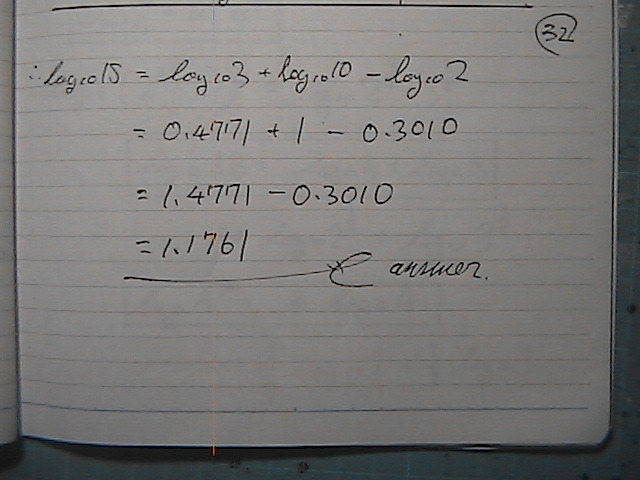 32
∴ log₁₀15 = log₁₀3 + log₁₀10 - log₁₀2
= 0.4771 + 1 - 0.3010
= 1.4771 - 0.3010
= 1.1761
answer.